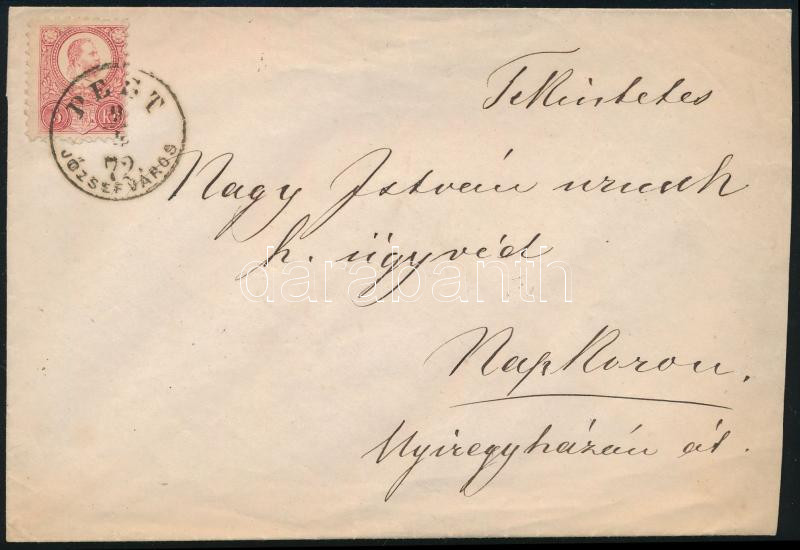 PEST
72.
JÓZSEFVÁROS
5 KR
Tekintetes
Nagy István urnak
h. ügyvéd
darabanth
Napkoron.
Nyiregyházán át.